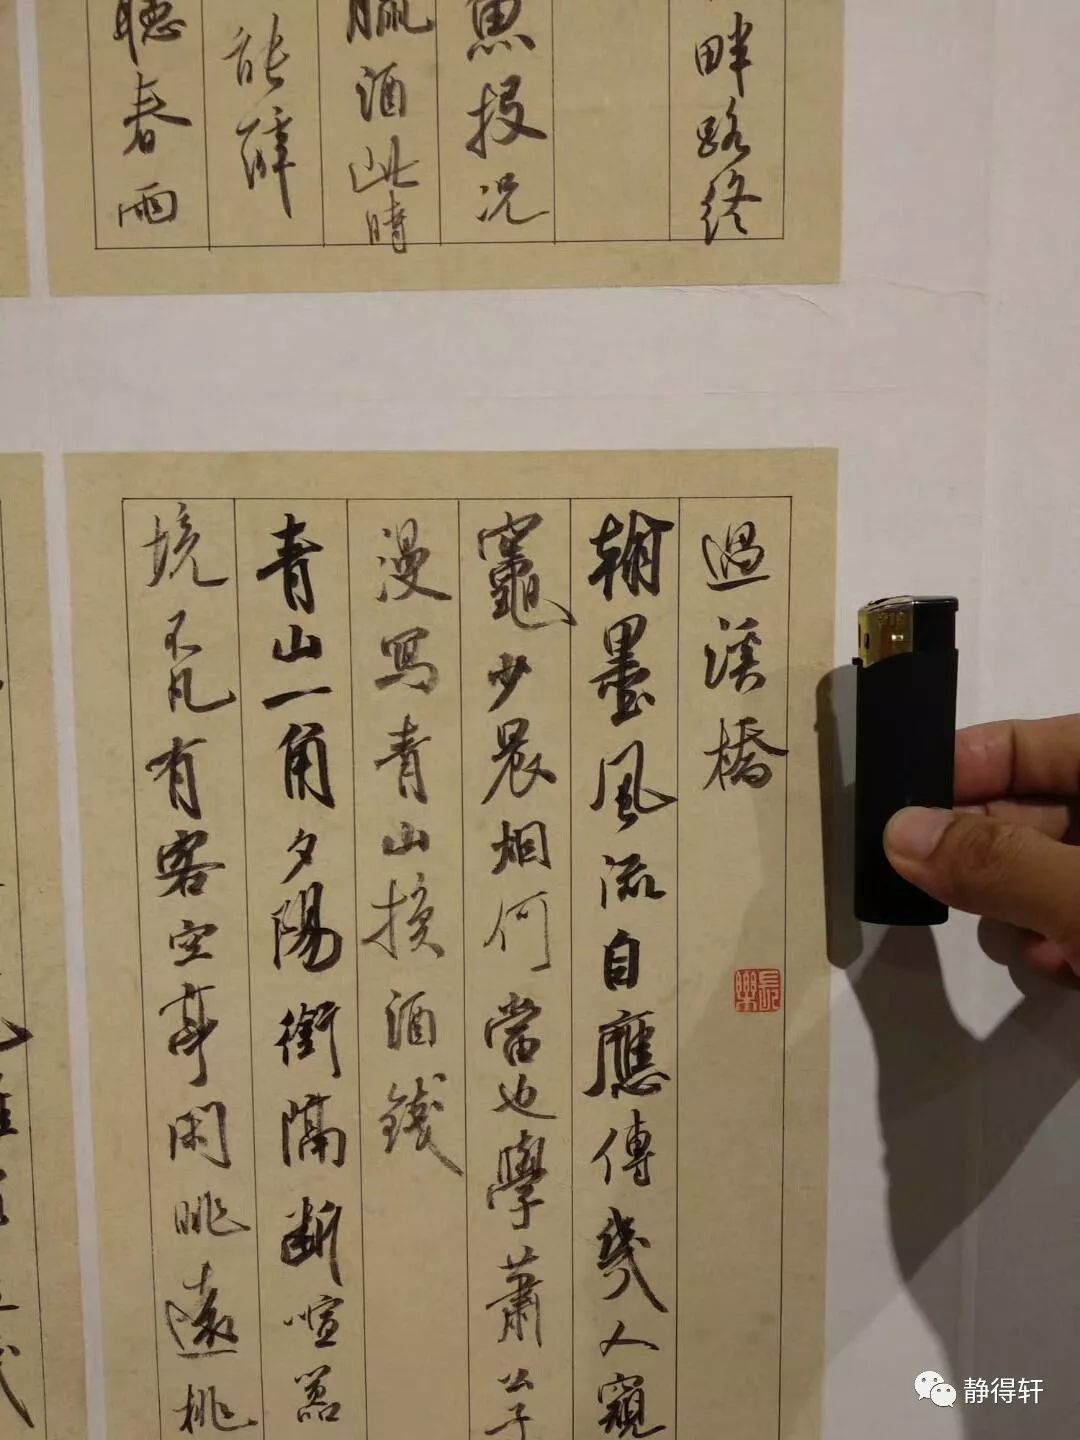 畔路終
魚投況
贏酒此時
能辭
聽春雨
過溪橋
翰墨風流自應傳幾人窺
竈少晨烟何當也學蕭公子
漫寫青山換酒錢
青山一角夕陽銜隔斷喧囂
境不凡有客空亭閑眺遠桃
長樂
静得轩